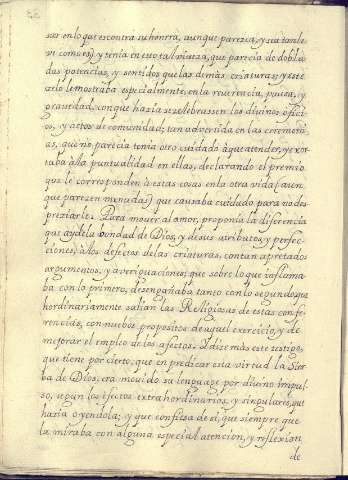 sas en lo que es contra su honrra, aunque parezca, y sea tan le
ve como es) y tenia en esto tal viueza, que parecia de dobla
das potencias, y sentidos que las demas criaturas; y este
zelo mostraba especialmente, en la reuerencia, pausa, y
grauedad, con que hazia se zelebrassen los diuinos ofici
os, y actos de comunidad; tan aduertida en las ceremoni
as, que no parecia tenia otro cuidado à que atender, y exor
taba à la puntualidad en ellas, declarando el premio
que le corresponden à estas cosas en la otra vida (aun
que parezen menudas) que causaba cuidado para no des
preziarle. Para mouer al amor, proponia la diferencia
que ay de la bondad de Dios, y de sus atributos, y perfec
ciones, à los defectos de las criaturas, con tan apretados
argumentos, y aueriguaciones, que sobre lo que inflama
ba con lo primero, desengañaba tanto con lo segundo, que
hordinariamente salian las Religiosas de estas confe
rencias, con nuebos propositos de aquel exercicio, y de
mejorar el empleo de los afectos. Y dize mas este testigo,
que tiene por cierto, que en predicar esta virtud la Sier
ba de Dios, era mouido su lenguage por diuino impul
so, segun los efectos extrahordinarios, y singulares, que
hazia oyendola; y que confiesa de si, que siempre que
la miraba con alguna especial atencion, y reflexion
de